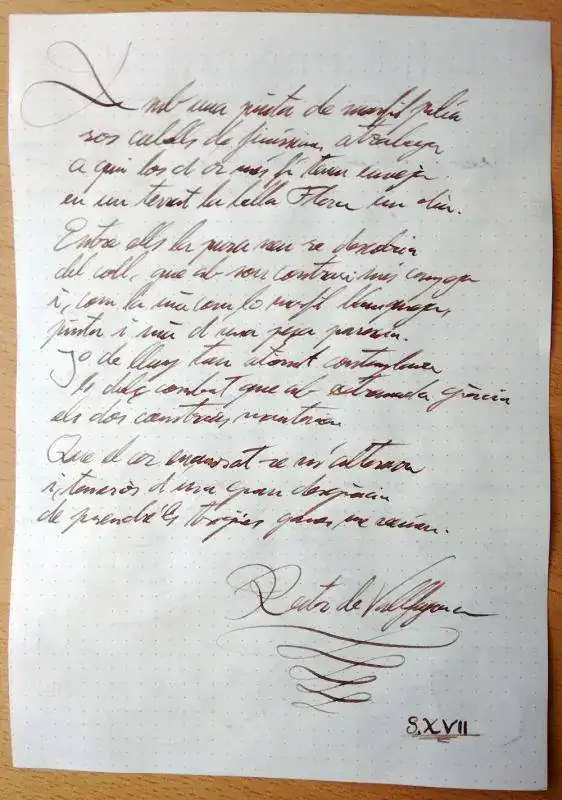 Amb una pinta de marfil polia
sos cabells de finíssima atzabeja
a qui los d'or més fi tenen enveja
en un terrat la bella Flora un dia.
Entre ells la pura neu se descobria
del coll, que ab son contrari més campeja
i, com la mà com lo marfil blanqueja,
pinta i mà d'una peça pareixia.
Jo de lluny tan atònit contemplava
lo dolç combat que ab extremada gràcia
els dos contraris mantenien
Que el cor enamorat se m'alterava
i, temerós d'una gran desgràcia
de prendre'ls treves ganes me venien.
Rector de Vallfogona
S.XVII